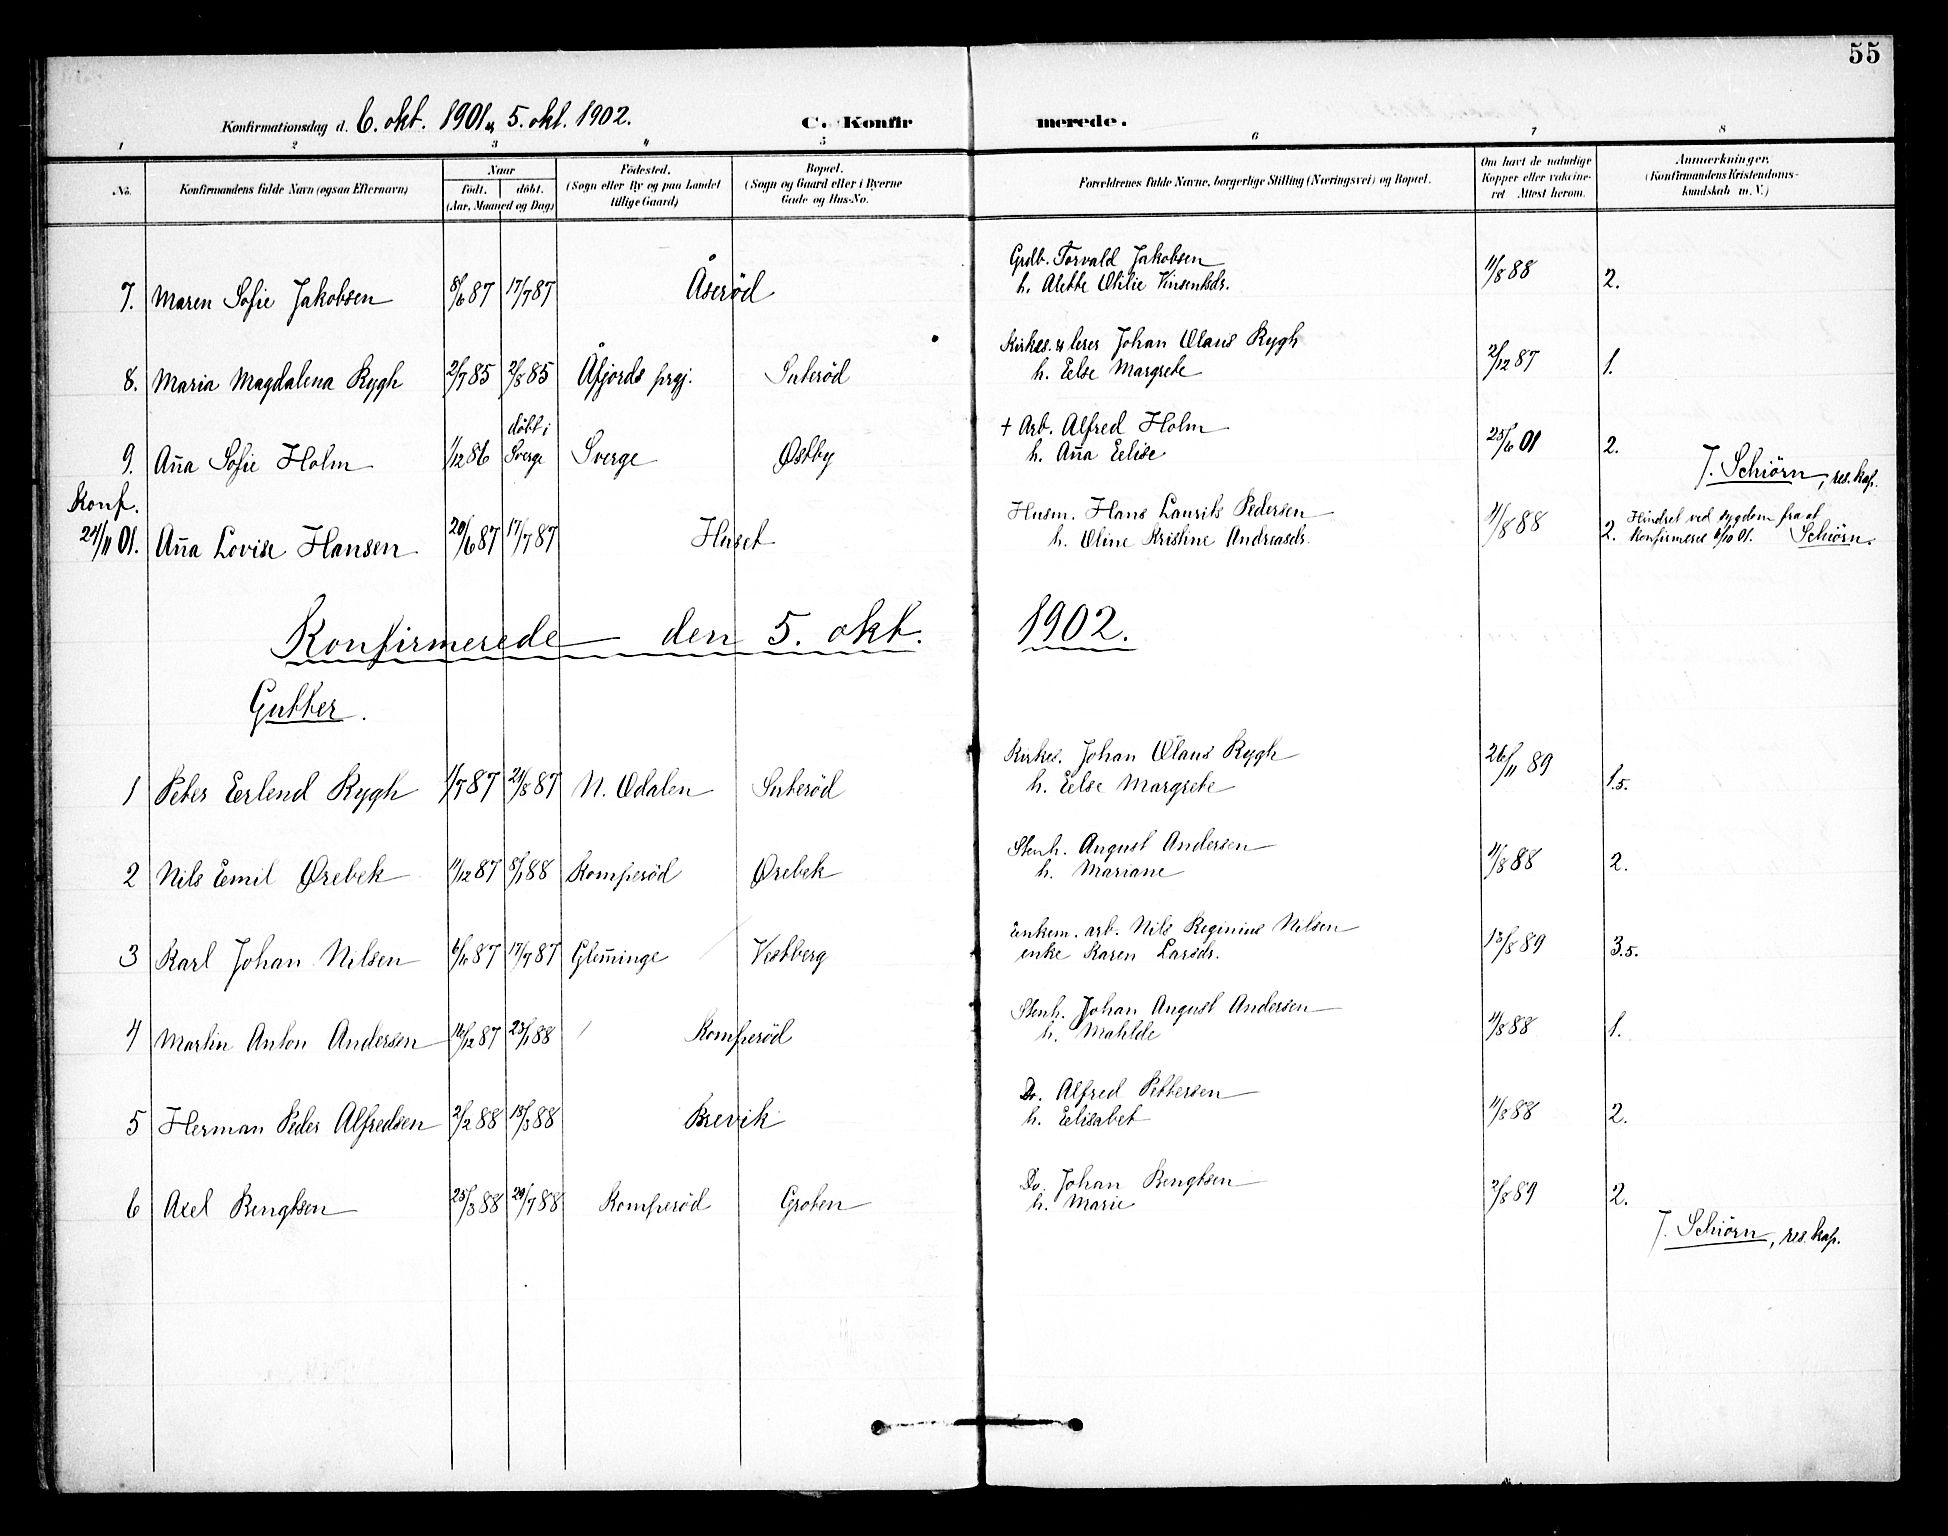 55
Konfirmationsdag d. 6. okt. 1901 & 5. okt. 1902. C. Konfirmerede.
1 2 3 4 5 6 7 8
No. Konfirmandens fulde Navn (ogsaa Efternavn) Naar født. døbt. (Aar, Maaned og Dag) Fødested. (Sogn eller By og paa Landet tillige Gaard) Bopæl. (Sogn og Gaard eller i Byerne Gade og Hus-No. Forældrenes fulde Navne, borgerlige Stilling (Næringsvei) og Bopæl. Om havt de naturlige Kopper eller vakcineret Attest herom. Anmærkninger. (Konfirmandens Kristendomskundskab m. V.)
7. Maren Sofie Jakobsen 8/6 87 17/7 87 Åserød Grdb. Torvald Jakobsen 11/8 88 2.
h. Alette Otilie Vinsentsdr.
8. Maria Magdalena Rygh 2/7 85 2/8 85 Åfjords prgj. Suterød Kirkes. & lærer Johan Olaus Rygh 2/12 87 1.
h. Else Margrete
9. Ana Sofie Holm 1/12 86 døbt i Sverge Sverge Østby + Arb. Alfred Holm 25/6 01 2.
h. Ana Elise
J. Schiørn, res. kap.
Konf.
24/11 01. Ana Lovise Hansen 20/6 87 17/7 87 Huset Husm. Hans Laurits Pedersen 11/8 88 2. Hindret ved sygdom fra at
h. Oline Kristine Andreasdr. Konfirmeres 6/10 01. Schiørn.
Konfirmerede den 5. okt. 1902.
Gutter.
1 Peter Erlend Rygh 1/7 87 21/8 87 N. Odalen Suterød Kirkes. Johan Olaus Rygh 26/11 89 1.5.
h. Else Margrete
2 Nils Emil Ørebek 11/12 87 8/1 88 Komperød Ørebek Stenh. August Andersen 11/8 88 2.
h. Mariane
3 Karl Johan Nilsen 17/7 87 Gleminge Vestberg Enkem. arb. Nils Reginius Nilsen 13/8 89 3.5.
enke Karen Larsdr.
4 Martin Anton Andersen 16/12 87 23/1 88 Komperød Stenh. Johan August Andersen 11/8 88 1.
h. Matilde
5 Herman Peder Alfredsen 2/2 88 18/3 88 Brevik Do. Alfred Pettersen 11/8 88 2.
h. Elisabet
6 Axel Bengtsen 25/3 88 29/7 88 Komperød Groten Do. Johan Bengtsen 2/8 89 2.
h. Marie
J. Schiørn, res. kap.